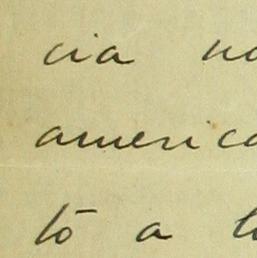 cia
america
to a